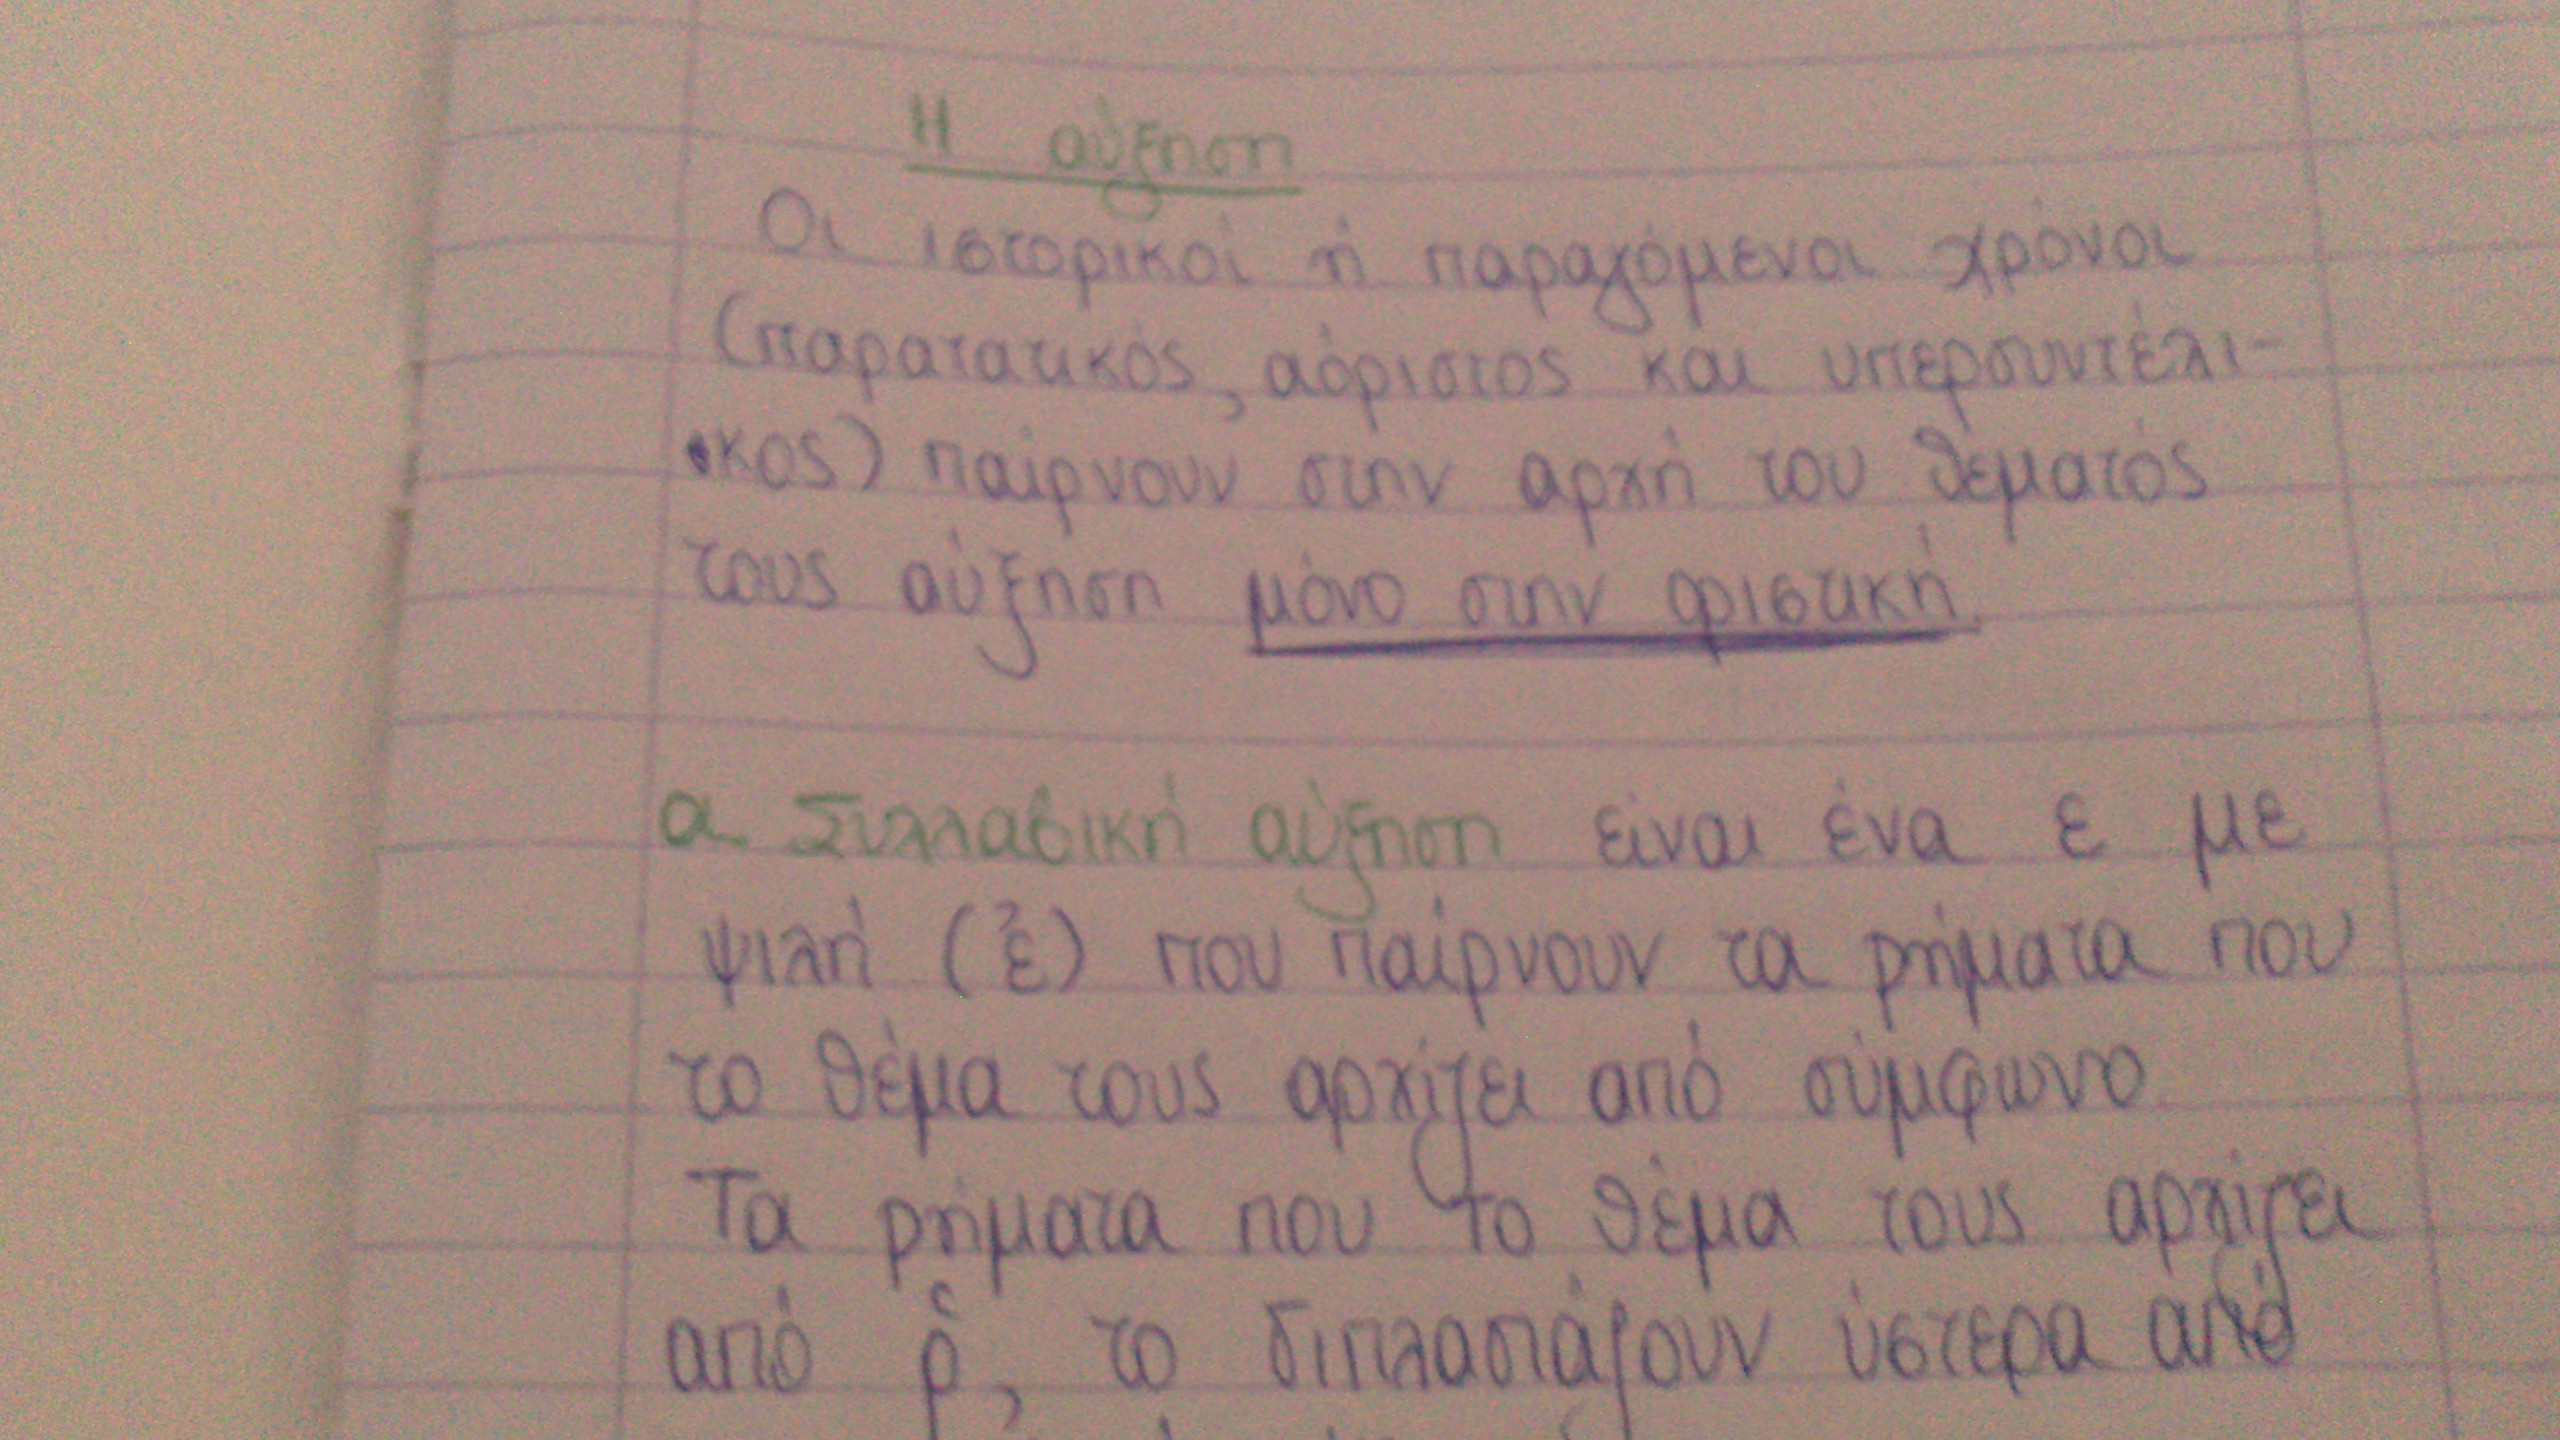 Η αύξηση
Οι ιστορικοί ή παραγόμενοι χρόνοι
(παρατατικός, αόριστος και υπερσυντέλι-
κος) παίρνουν στην αρχή του θέματός
τους αύξηση μόνο στην οριστική.
α Συλλαβική αύξηση είναι ένα ε με
ψιλή (ἐ) που παίρνουν τα ρήματα που
το θέμα τους αρχίζει από σύμφωνο
Τα ρήματα που το θέμα τους αρχίζει
από ῥ, το διπλασιάζουν ύστερα από